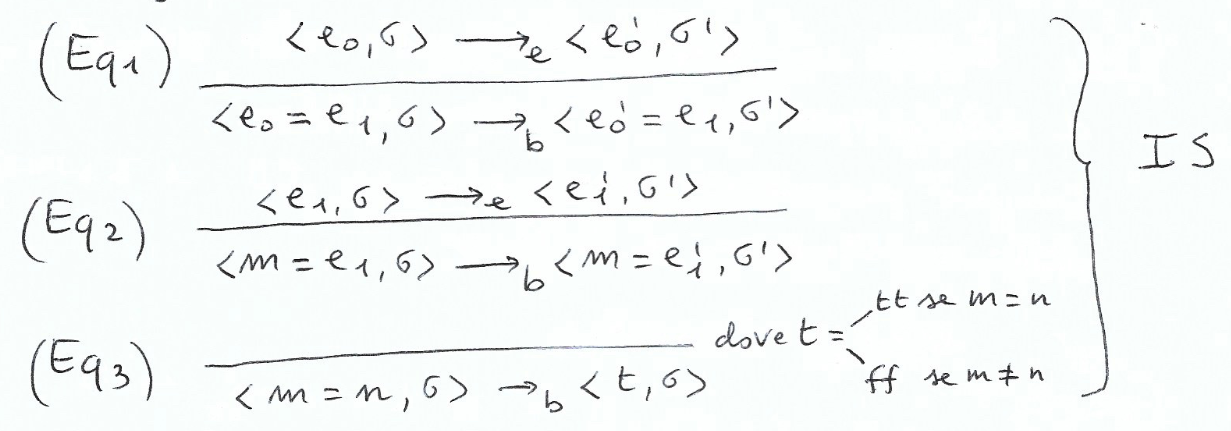 (Eq1) <e₀,σ> →ₑ <e₀',σ'>
<e₀ = e₁,σ> →b <e₀' = e₁,σ'>
IS
(Eq2) <e₁,σ> →ₑ <e₁',σ'>
<m = e₁,σ> →b <m = e₁',σ'>
(Eq3) <m = n,σ> →b <t,σ> dove t = tt se m = n
ff se m ≠ n